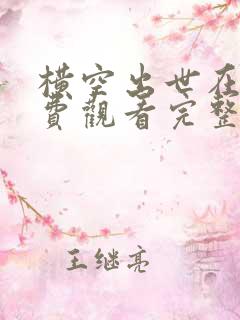 横空出世在
费觀看完整
王继亮